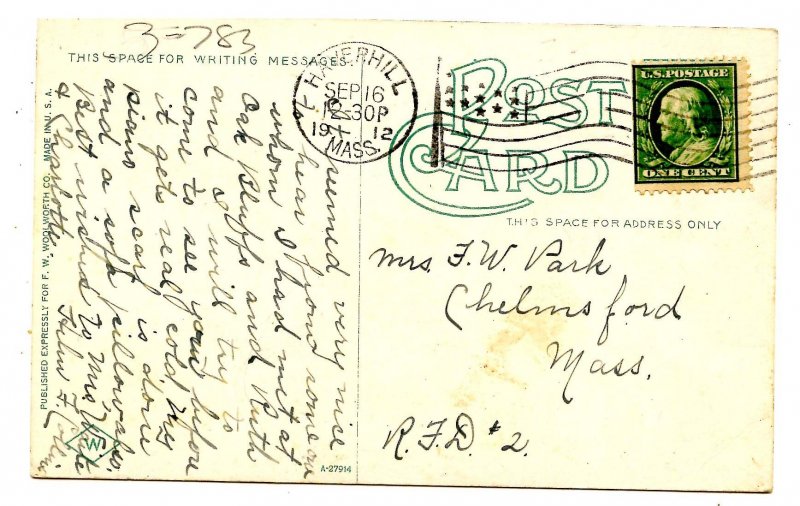 3=783
THIS SPACE FOR WRITING MESSAGES.
HAVERHILL
SEP 16
12-30P
1912
MASS.
POST
CARD
U.S. POSTAGE
ONE CENT
THIS SPACE FOR ADDRESS ONLY
It seemed very nice
to hear from some one
whom I had met at
Oak Bluffs and Ruth
and I will try to
come to see you before
it gets real cold. My
piano scarf is done
and a sofa pillow also.
Best wishes to Mrs. White
& Charlotte.
Mrs. F. W. Park
Chelmsford
Mass.
R.F.D. #2.
PUBLISHED EXPRESSLY FOR F. W. WOOLWORTH CO. MADE IN U. S. A.
W
A-27914